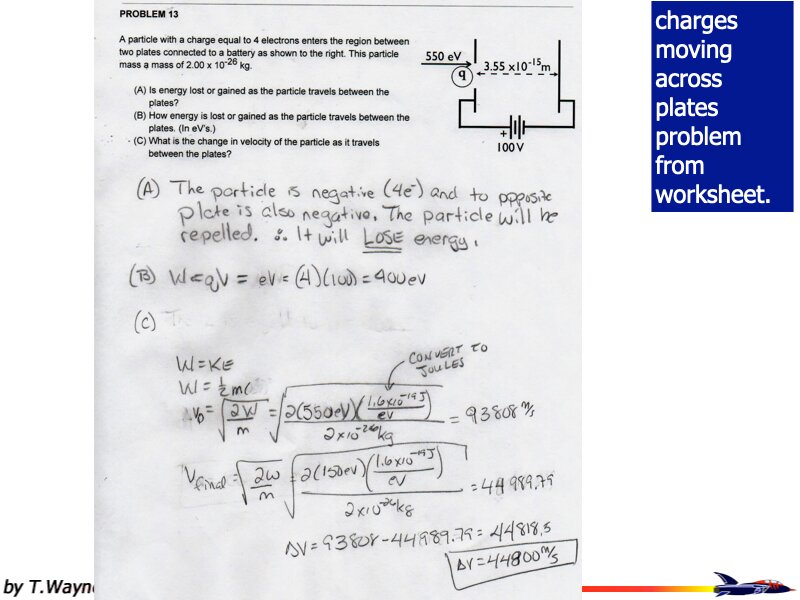 PROBLEM 13
A particle with a charge equal to 4 electrons enters the region between
two plates connected to a battery as shown to the right. This particle
mass a mass of 2.00 x 10⁻²⁶ kg.
(A) Is energy lost or gained as the particle travels between the
plates?
(B) How energy is lost or gained as the particle travels between the
plates. (In eV's.)
(C) What is the change in velocity of the particle as it travels
between the plates?
550 eV
q
3.55 x10⁻¹⁵m
+
100 V
charges
moving
across
plates
problem
from
worksheet.
(A) The particle is negative (4e⁻) and to opposite
plate is also negative. The particle will be
repelled. ∴ It will LOSE energy.
(B) W = qV = eV = (4)(100) = 400 eV
(C)
W = KE
CONVERT TO
JOULES
W = ½ m
v₀ = √(2W/m) = √(2(550eV)(1.6x10⁻¹⁹J/eV)/2x10⁻²⁶kg) = 93808 m/s
Vfinal = √(2W/m) = √(2(150eV)(1.6x10⁻¹⁹J/eV)/2x10⁻²⁶kg) = 44989.79
ΔV = 93808 - 44989.79 = 44818.5
ΔV = 44800 m/s
by T.Wayne